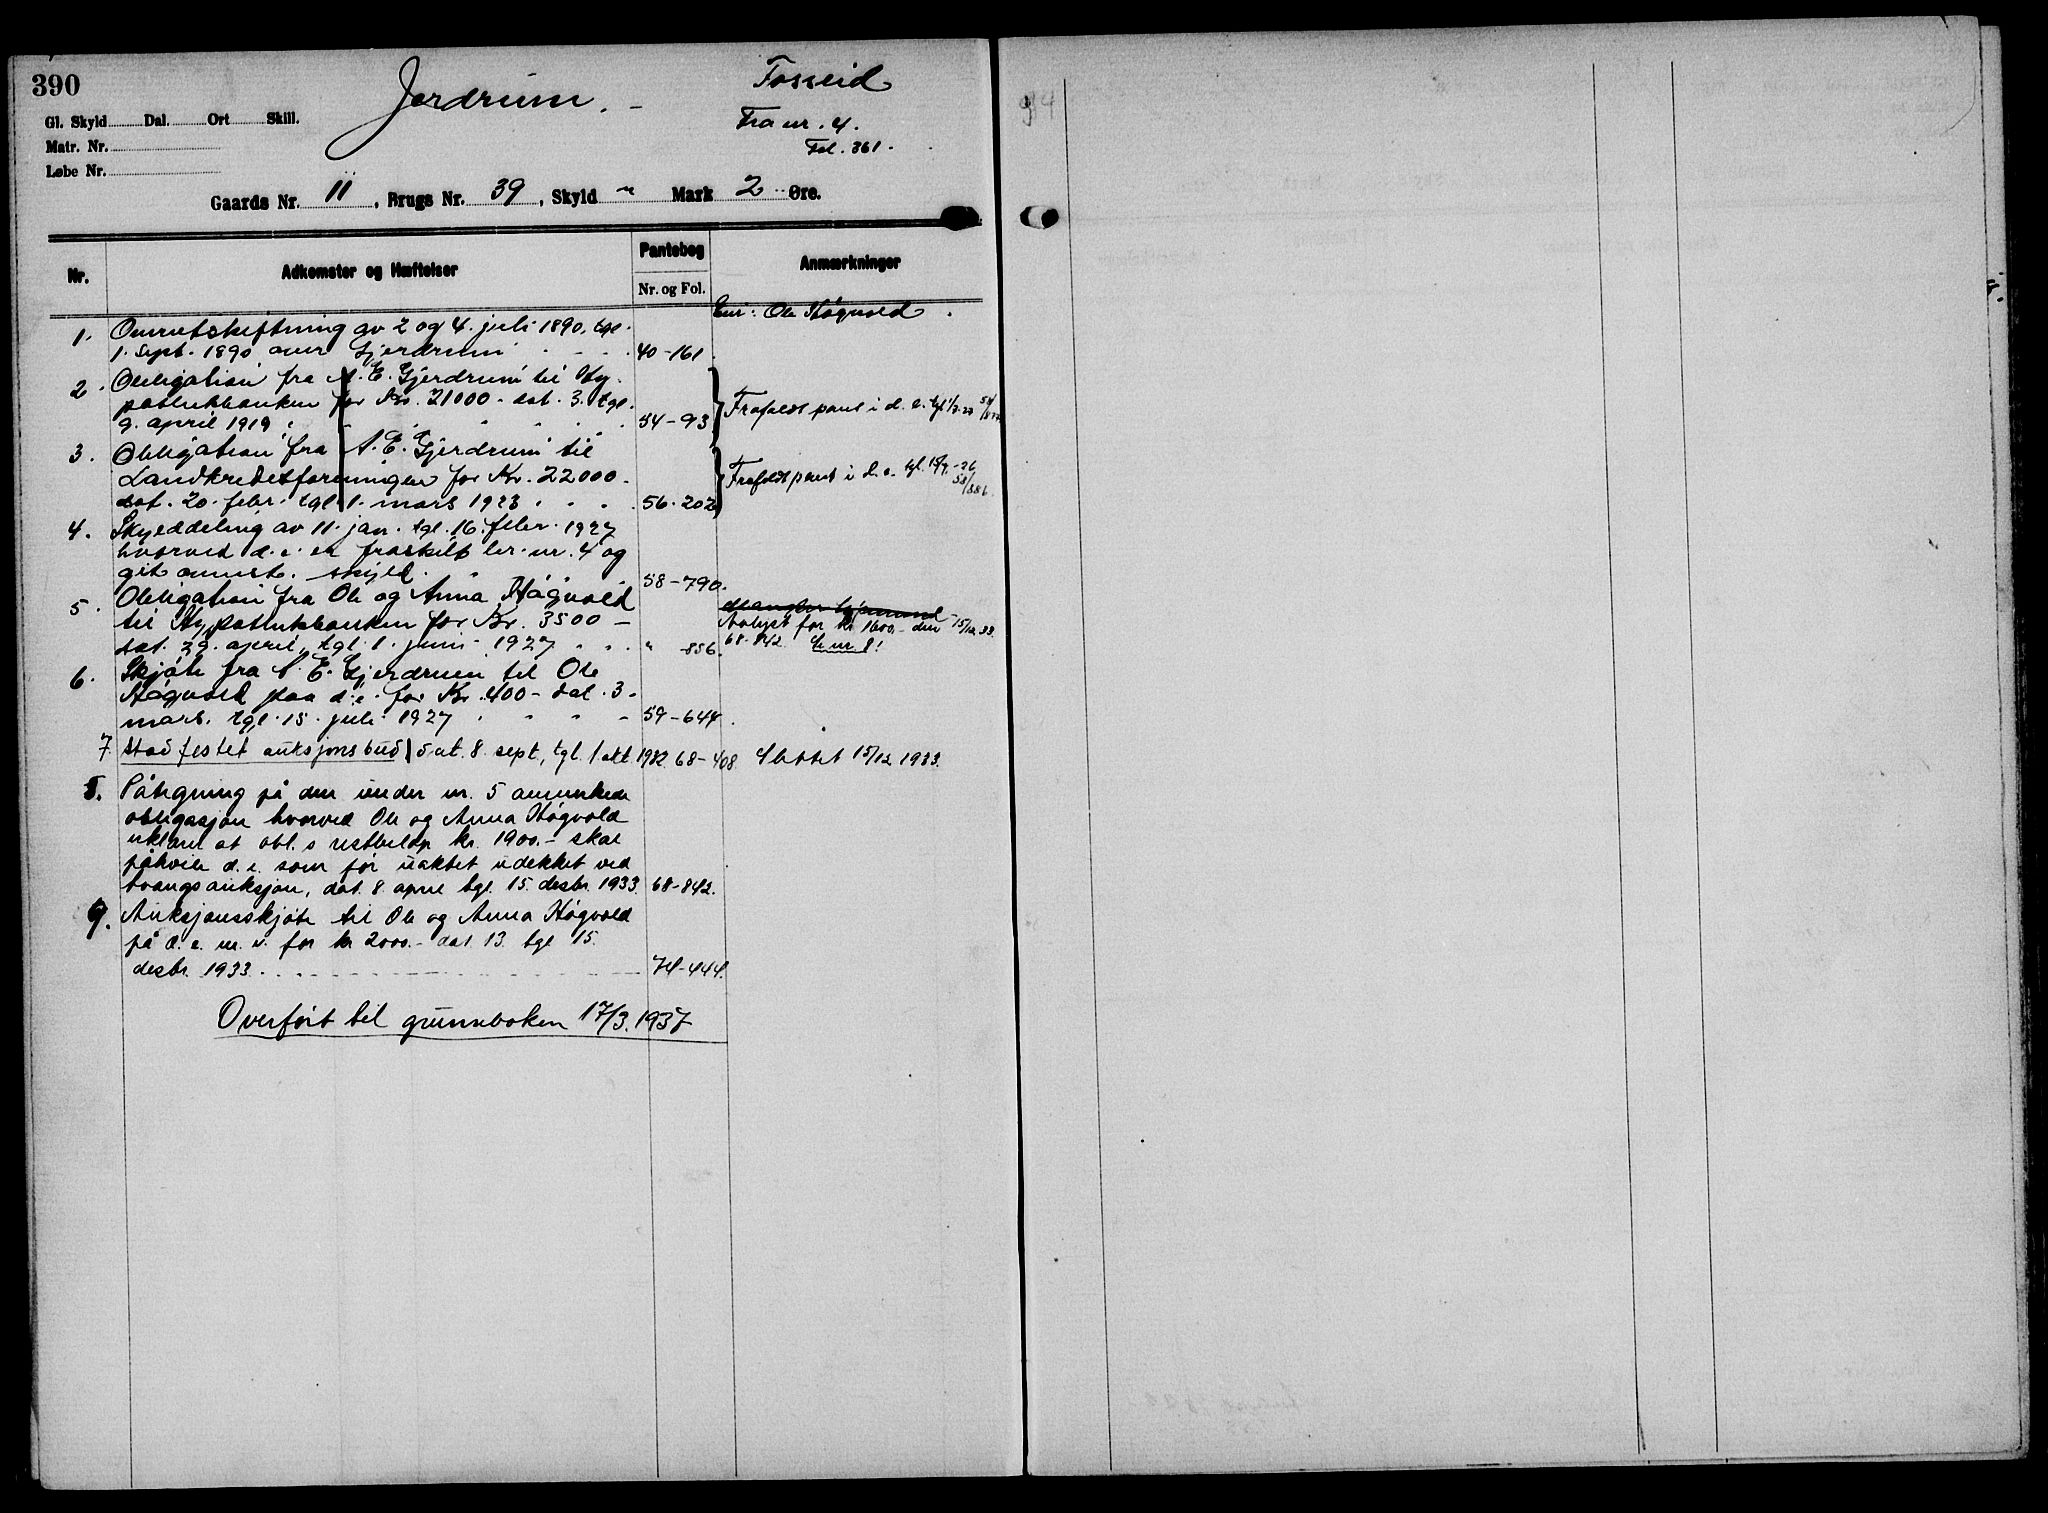 390
Jerdrum.
Fosseid
Fra nr. 4.
Fol. 361.
Gl. Skyld Dal. Ort Skill.
Matr. Nr.
Løbe Nr.
Gaards Nr. 11, Brugs Nr. 39, Skyld " Mark 2 Øre.
Nr. Adkomster og Hæftelser Pantebog Nr. og Fol. Anmærkninger
Eier: Ole Høgvold.
1. Omutskiftning av 2 og 4. juli 1890, tgl.
1. Sept. 1890 over Gjerdrum 40-161.
2. Obligation fra A. E. Gjerdrum til Hy-
potekbanken for Kr. 21000 - dat. 3. tgl.
9. april 1919 54-93 Frafaldt pant i d. e. tgl.
3. Obligation fra A. E. Gjerdrum til
Landkreditforeningen for Kr. 22000-
dat. 20. febr. tgl. 1. mars 1923 56-202 Frafaldt pant i d. e. tgl.
4. Skylddeling av 11. jan. tgl. 16. febr. 1927
hvorved d. e. er fraskilt br. nr. 4 og
git anmst. skyld. 58-790.
5. Obligation fra Ole og Anna Høgvold
til Hypotekbanken for Kr. 3500-
dat. 29. april, tgl. 1. juni 1927 " -856.
Mangler hjemmel
Avlyst for kr 1600.- den 15/12 33.
68-842. Se nr 8!
6. Skjøte fra A. E. Gjerdrum til Ole
Høgvold paa d. e. for Kr. 400- dat. 3.
mars. tgl. 15. juli 1927 59-644.
7. Stadfestet auksjonsbud dat. 8. sept, tgl. 1 okt. 1932 68-408. Slettet 15/12 1933.
8. Påtegning på den under nr. 5 anmerkede
obligasjon hvorved Ole og Anna Høgvold
erklærer at obl. s restbeløp kr. 1900.- skal
påhvile d. e. som før uaktet udekket ved
tvangsauksjon, dat. 8. april tgl. 15. desbr. 1933. 68-842.
9. Auksjonsskjøte til Ole og Anna Høgvold
på d. e. m. v. for kr 2000.- dat. 13. tgl 15.
desbr. 1933. 74-444.
Overført til grunnboken 17/3. 1937